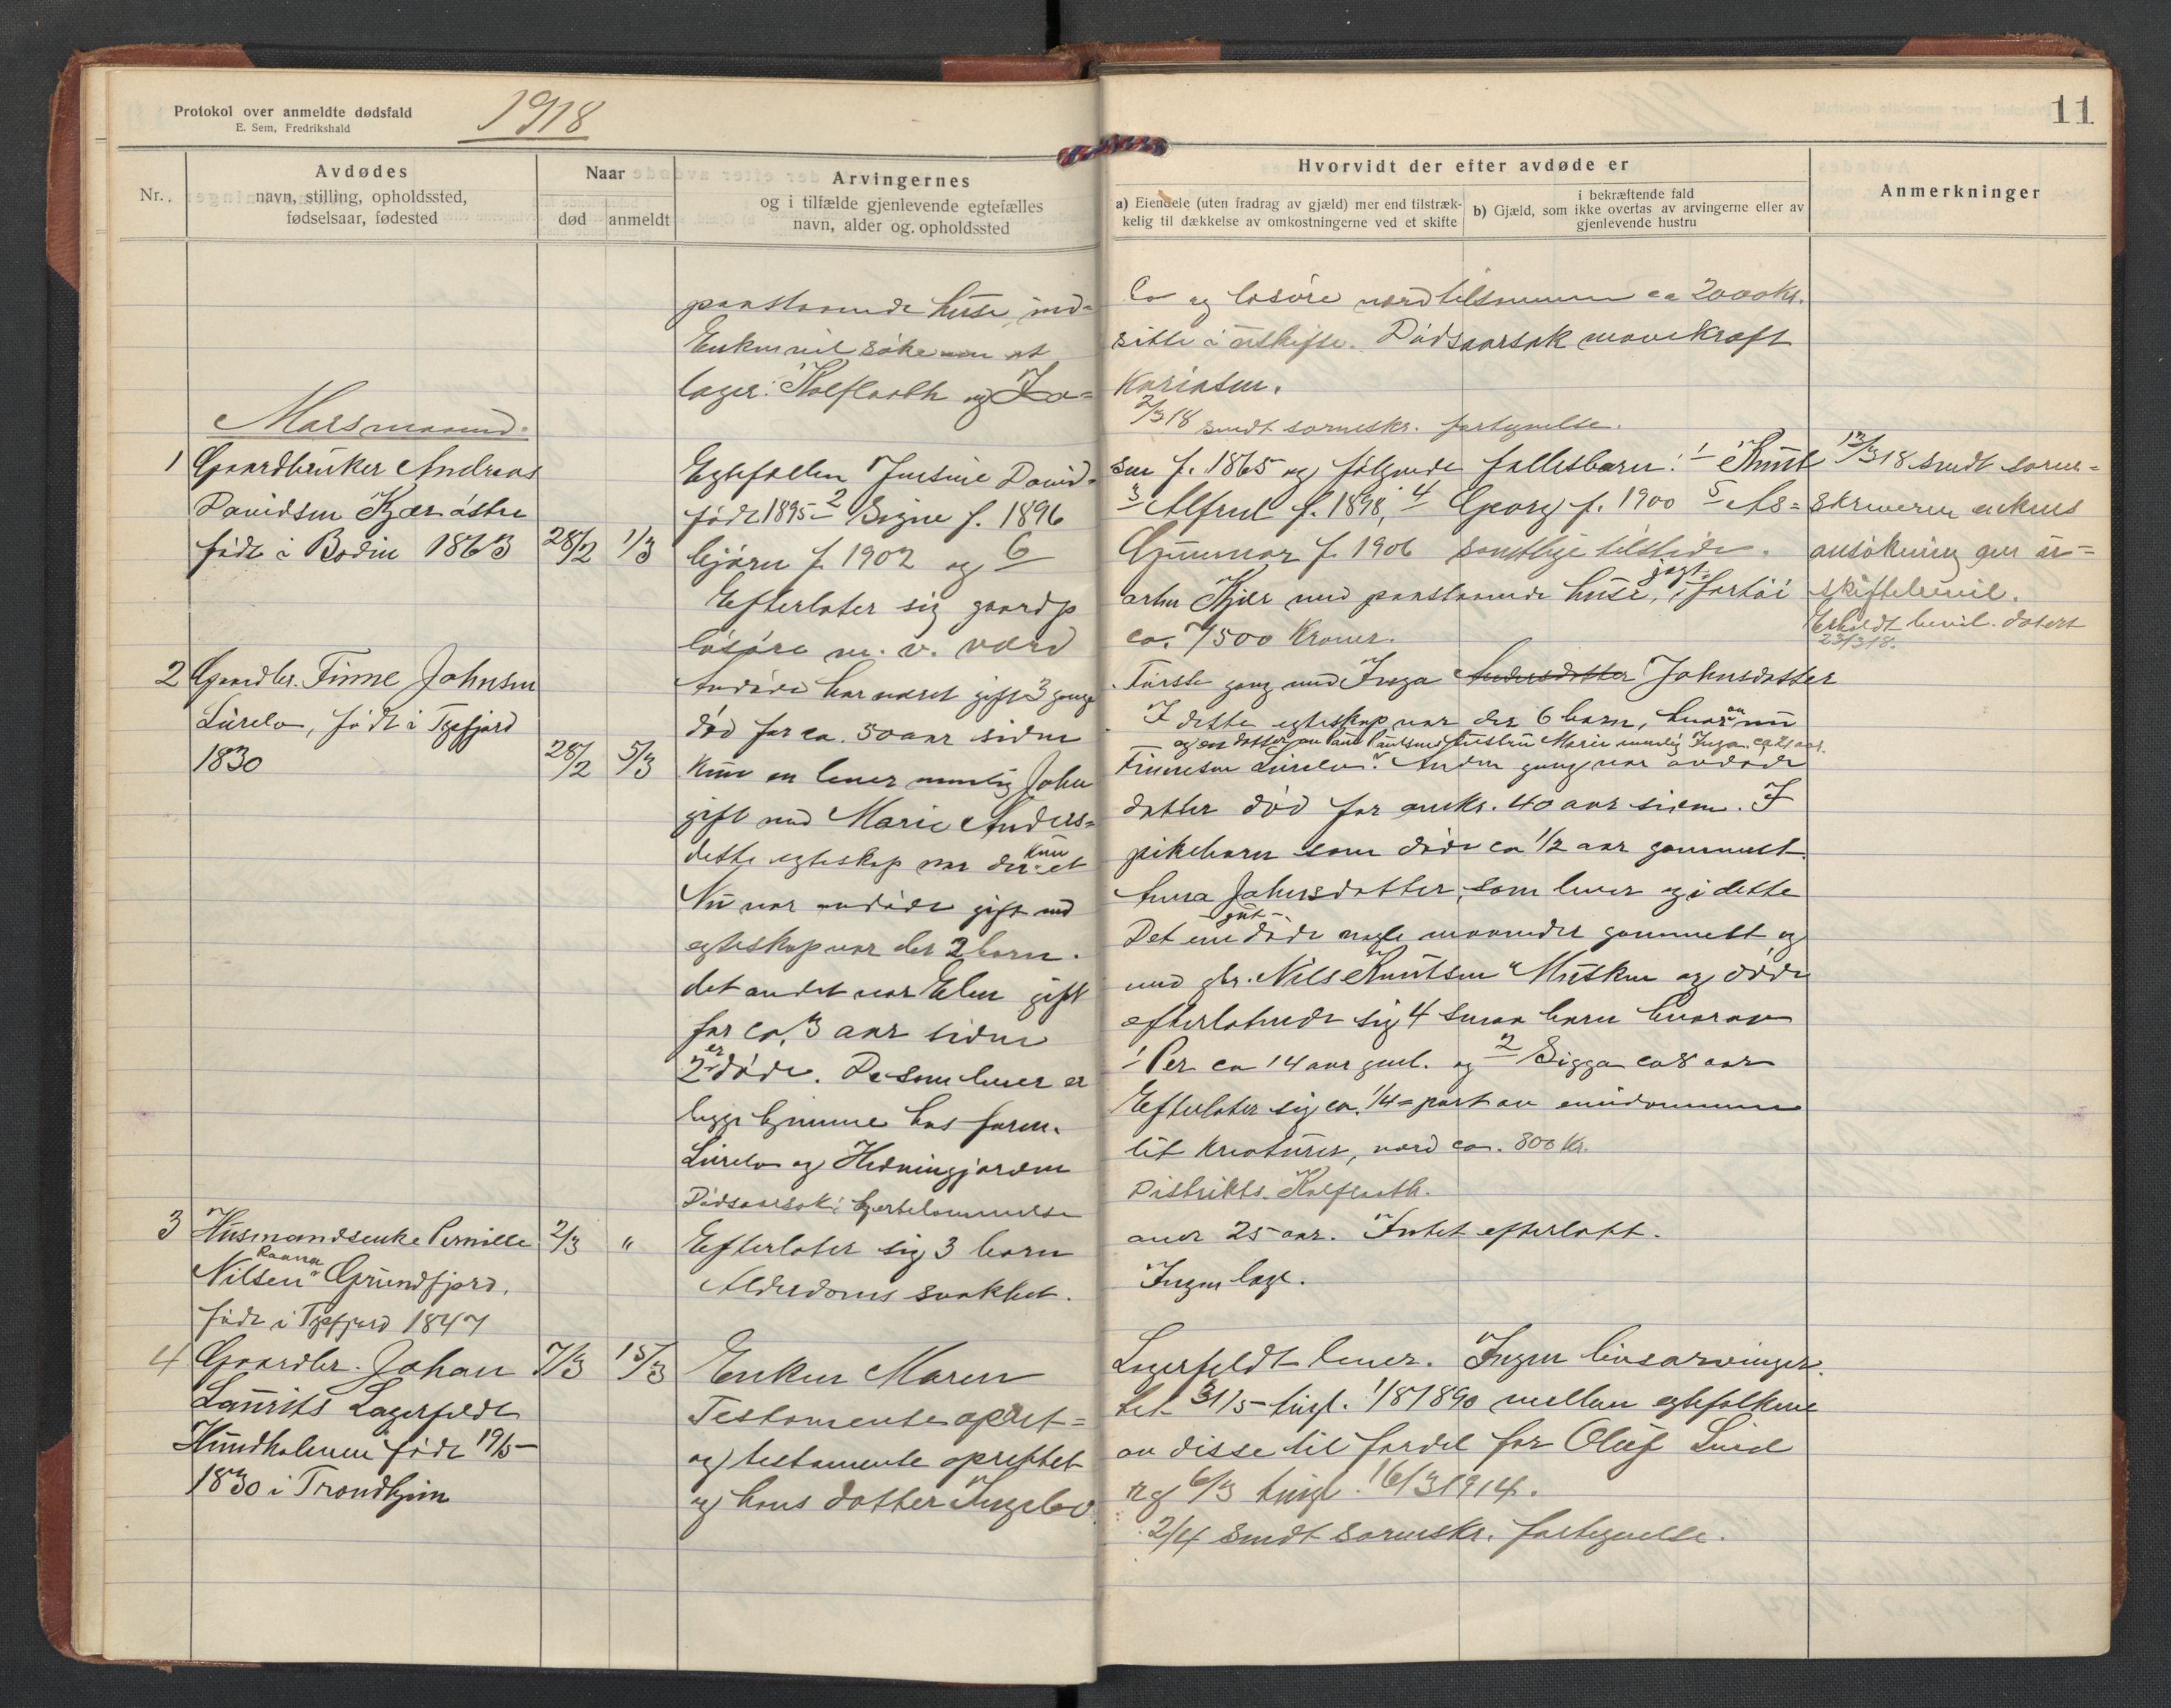 Protokol over anmeldte dødsfald
E. Sem, Fredrikshald
1918
11
Nr.
Avdødes
navn, stilling, opholdssted,
fødselsaar, fødested
Naar
død
anmeldt
Arvingernes
og i tilfælde gjenlevende egtefælles
navn, alder og opholdssted
Hvorvidt der efter avdøde er
a) Eiendele (uten fradrag av gjæld) mer end tilstræk-
kelig til dækkelse av omkostningerne ved et skifte
i bekræftende fald
b) Gjæld, som ikke overtas av arvingerne eller av
gjenlevende hustru
Anmerkninger
paastaaende huse, ind=
bo og løsøre værd tilsammen ca 2000 kr.
Enken vil søke om at
sitte i uskifte. Dødsaarsak mavekræft
læge: Kolflaath og Za=
kariasen.
2/3 18 sendt sorenskr. fortegnelse.
Marsmaaned.
1 Gaardbruker Andreas
Davidsen Kjær østre
født i Bodin 1863
28/2
1/3
Egtefællen Jensine David=
sen f. 1865 og følgende fællesbarn: 1 Knut
født 1895 2 Signe f. 1896
3 Alfred f. 1898, 4 Georg f. 1900 5 As=
bjørn f. 1902 og 6
Gunnar f. 1906 samtlige tilstede.
Efterlater sig gaardp
arten Kjær med paastaaende huse, jagt, fartøi
løsøre m. v. værd
ca. 7500 Kroner.
13/3 18 sendt soren=
skriveren enkens
ansøkning om u=
skiftebevil.
Erholdt bevil. datert
23/3 18.
2 Gaardbr. Finne Johnsen
Lurelv, født i Tysfjord
1830
28/2
5/3
Avdøde har været gift 3 gange
Første gang med Inga Andersdatter Johnsdatter
død for ca. 50 aar siden
I dette egteskap var der 6 barn, hvorav nu
og en datter av Paul Paulsens hustru Marie nemlig Inga ca 21 aar.
kun en lever nemlig John
Finnesen Lurelv. Anden gang var avdøde
gift med Marie Anders=
datter død for omkr. 40 aar siden. I
dette egteskap var der kun et
pikebarn som døde ca 1/2 aar gammelt.
Nu var avdøde gift med
Anna Johnsdatter, som lever og i dette
egteskap var der 2 barn.
Det ene - gut - døde nogle maaneder gammelt og
det andet var Elen gift
med gbr. Nils Knutsen Musken og døde
for ca. 3 aar siden
efterlatende sig 4 smaa barn hvorav
2 er døde. De som lever er
1 Per ca 14 aar gml. og 2 Sigga ca 8 aar
begge hjemme hos faren.
Efterlater sig ca. 1/4=part av eiendommene
Lurelv og Hedningjorden
lit kreaturer, værd ca. 800 kr.
Dødsaarsak: hjertelammelse
Distriktsl. Kolflaath.
3 Husmandsenke Pernille
Nilsen Grundfjord.
født i Tysfjord 1847
2/3
"
Efterlater sig 3 barn
over 25 aar. Intet efterlatt.
Alderdoms svakhet.
Ingen læge.
4 Gaardbr. Johan
Laurits Lagerfeldt
Hundholmen født 19/5
1830 i Trondhjem
7/3
15/3
Enken Maren
Lagerfeldt lever. Ingen livsarvinger.
Testamente opret=
tet 31/5 tingl. 1/8 1890 mellem egtefolkene
og testamente oprettet
av disse til fordel for Oluf Lind
og hans datter Ingebo
rg 6/3 tingl. 16/3 1914.
2/4 sendt sorenskr. fortegnelse.